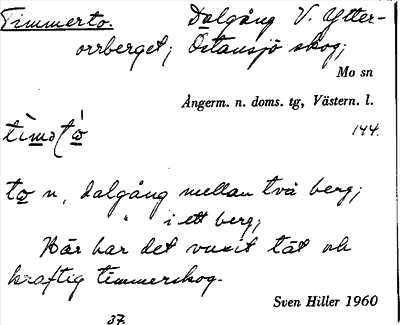 Timmerto. Dalgång V. Ytter-
orrberget, Östansjö skog;
Mo sn
Ångerm. n. doms. tg, Västern. l.
144.
to n, dalgång mellan två berg;
" i ett berg;
Här har det vuxit tät och
kraftig timmerskog.
Sven Hiller 1960
37